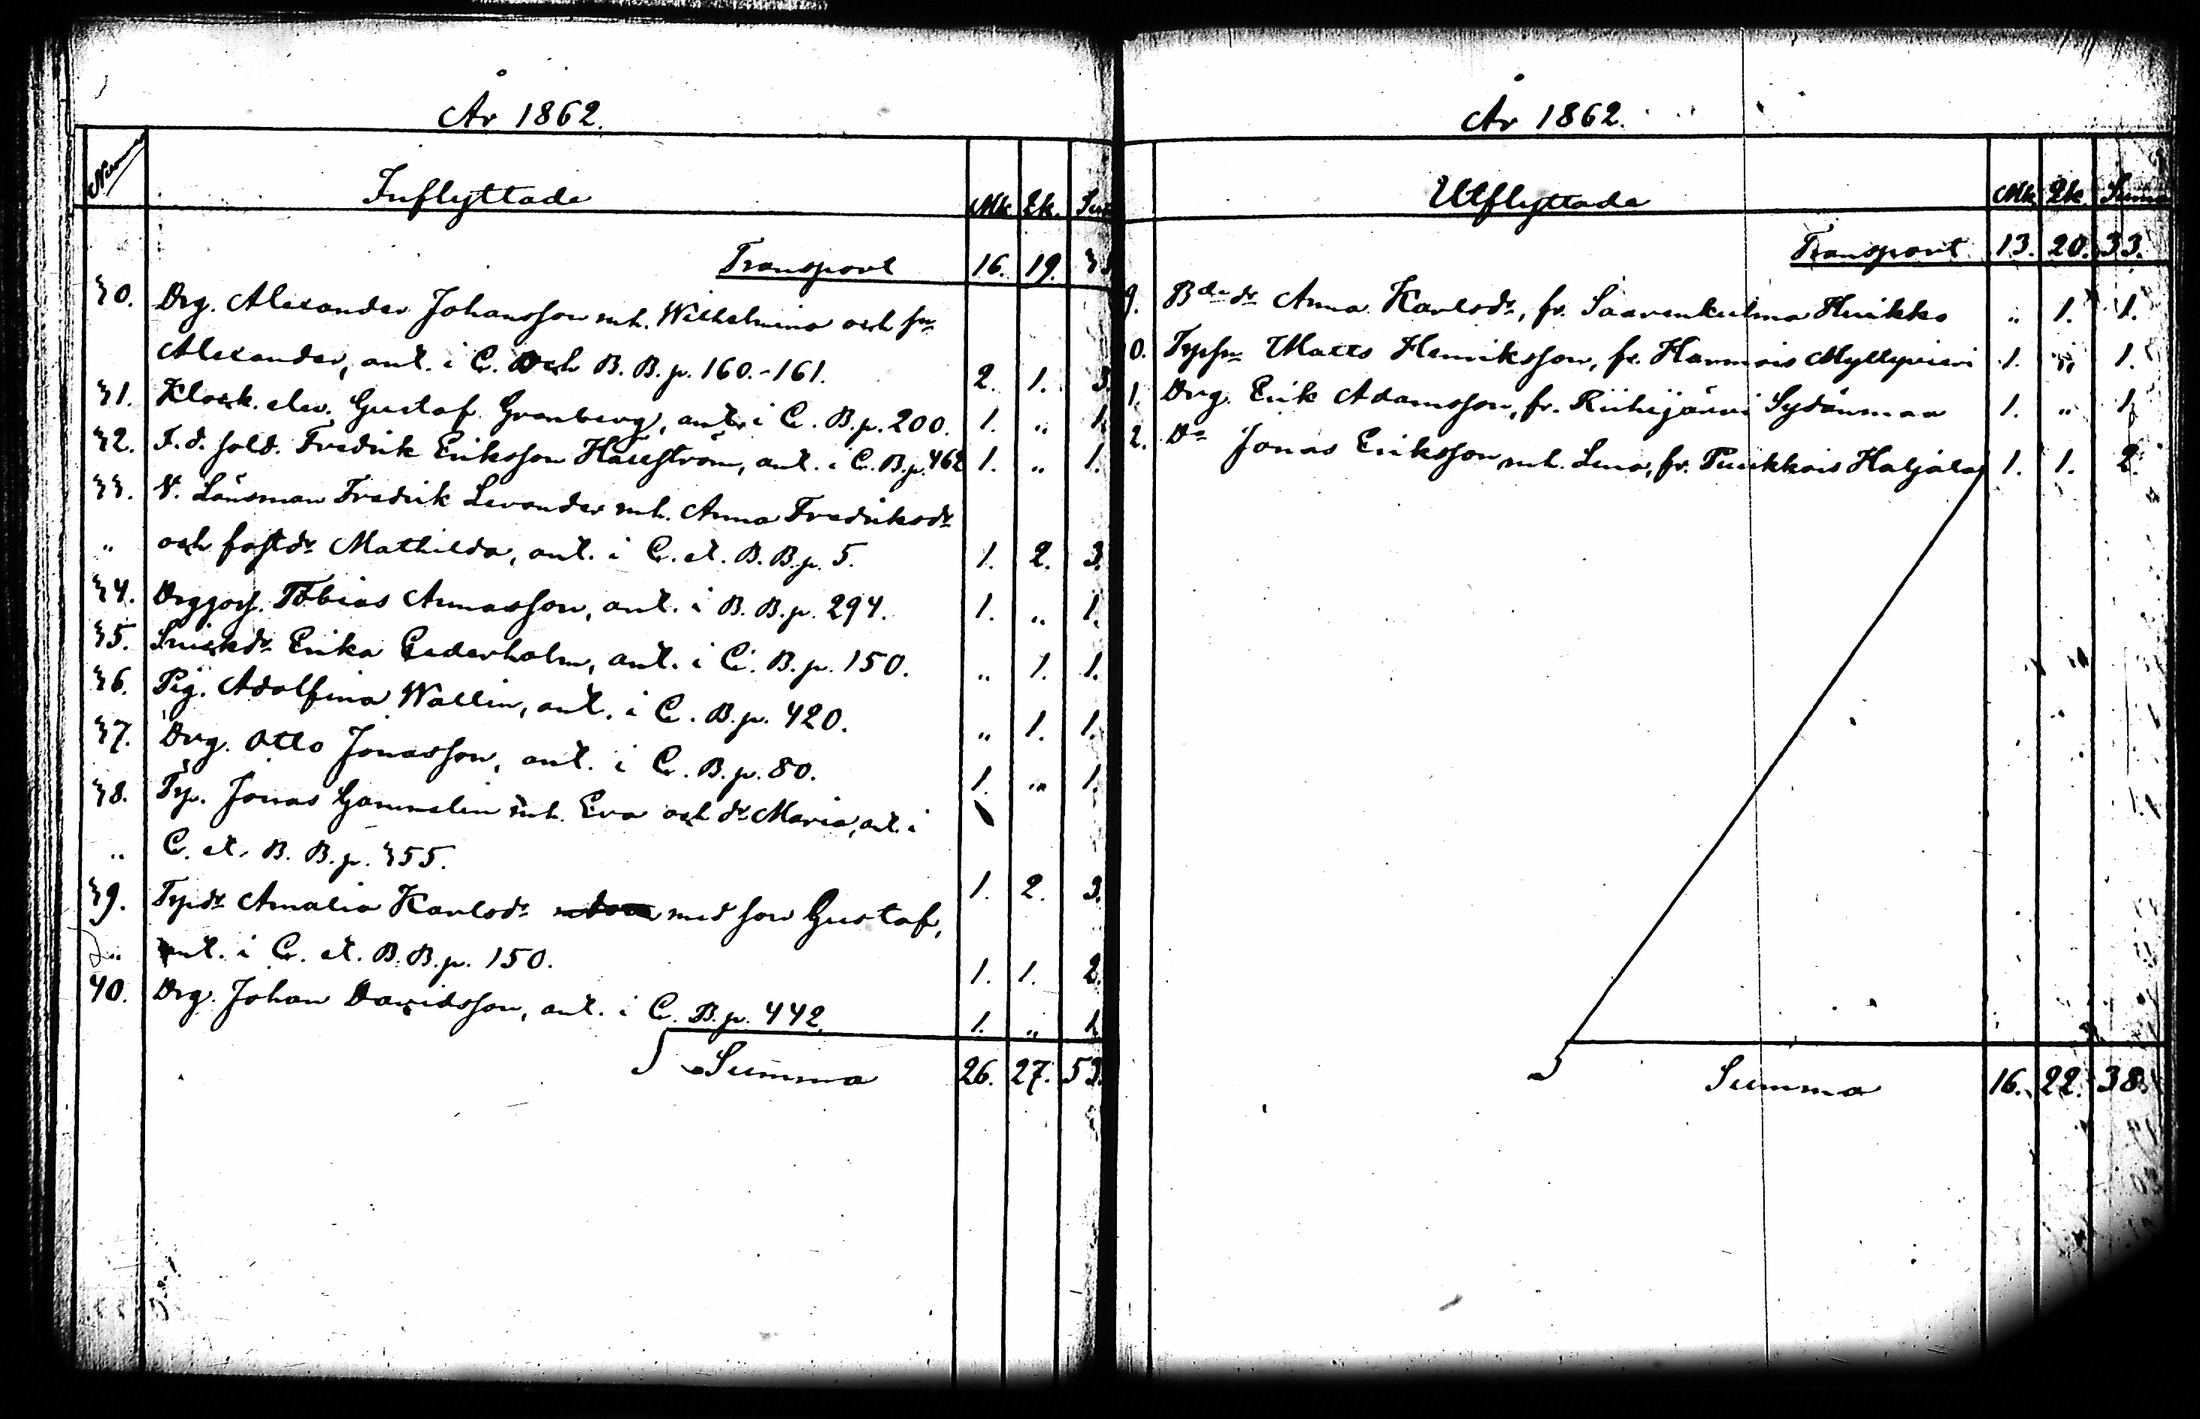 År 1862.
Numro Inflyttade Mk. Qk. Sum
Transport 16. 19. 3
30. Drg. Alexander Johansson mh. Wilhelmina och sn
Alexander, ant. i C. Och B. B. p. 160.-161. 2. 1. 3.
31. Klock. elev. Gustaf Granberg, ant. i C. B. p. 200. 1. „ 1.
32. F. d. sold. Fredrik Eriksson Hallström, ant. i C. B. p. 462 1. „ 1.
33. V. Länsman Fredrik Levander mh. Anna Fredriksdr
„ och fostdr Mathilda, ant. i C. et. B. B. p. 5. 1. 2. 3.
34. Drggoss. Tobias Annasson, ant. i B. B. p. 294. 1. „ 1.
35. Snickdr Erika Cederholm, ant. i C. B. p. 150. „ 1. 1.
36. Pig. Adolfina Wallin, ant. i C. B. p. 420. „ 1. 1.
37. Drg. Otto Jonasson, ant. i C. B. p. 80. 1. „ 1.
38. Tp. Jonas Gammelin mh. Eva och dr Maria, ant. i
„ C. et. B. B. p. 355. 1. 2. 3.
39. Tpdr Amalia Karlsdr med son Gustaf,
„ ant. i C. et. B. B. p. 150. 1. 1. 2.
40. Drg. Johan Davidsson, ant. i C. B. p. 442. 1. „ 1.
Summa 26. 27. 53.
År 1862.
Utflyttade Mk. Qk. Summa
Transport 13. 20. 33.
9. Bdedr Anna Karlsdr, fr. Saarenkulma Heikko „ 1. 1.
0. Tpsn Matts Henriksson, fr. Hannois Myllyrieni 1. „ 1.
1. Drg. Erik Adamsson, fr. Riihijärvi Sydänmaa 1. „ 1.
2. Do Jonas Eriksson mh. Lena, fr. Tuiskkois Haljala 1. 1. 2.
Summa 16. 22. 38.